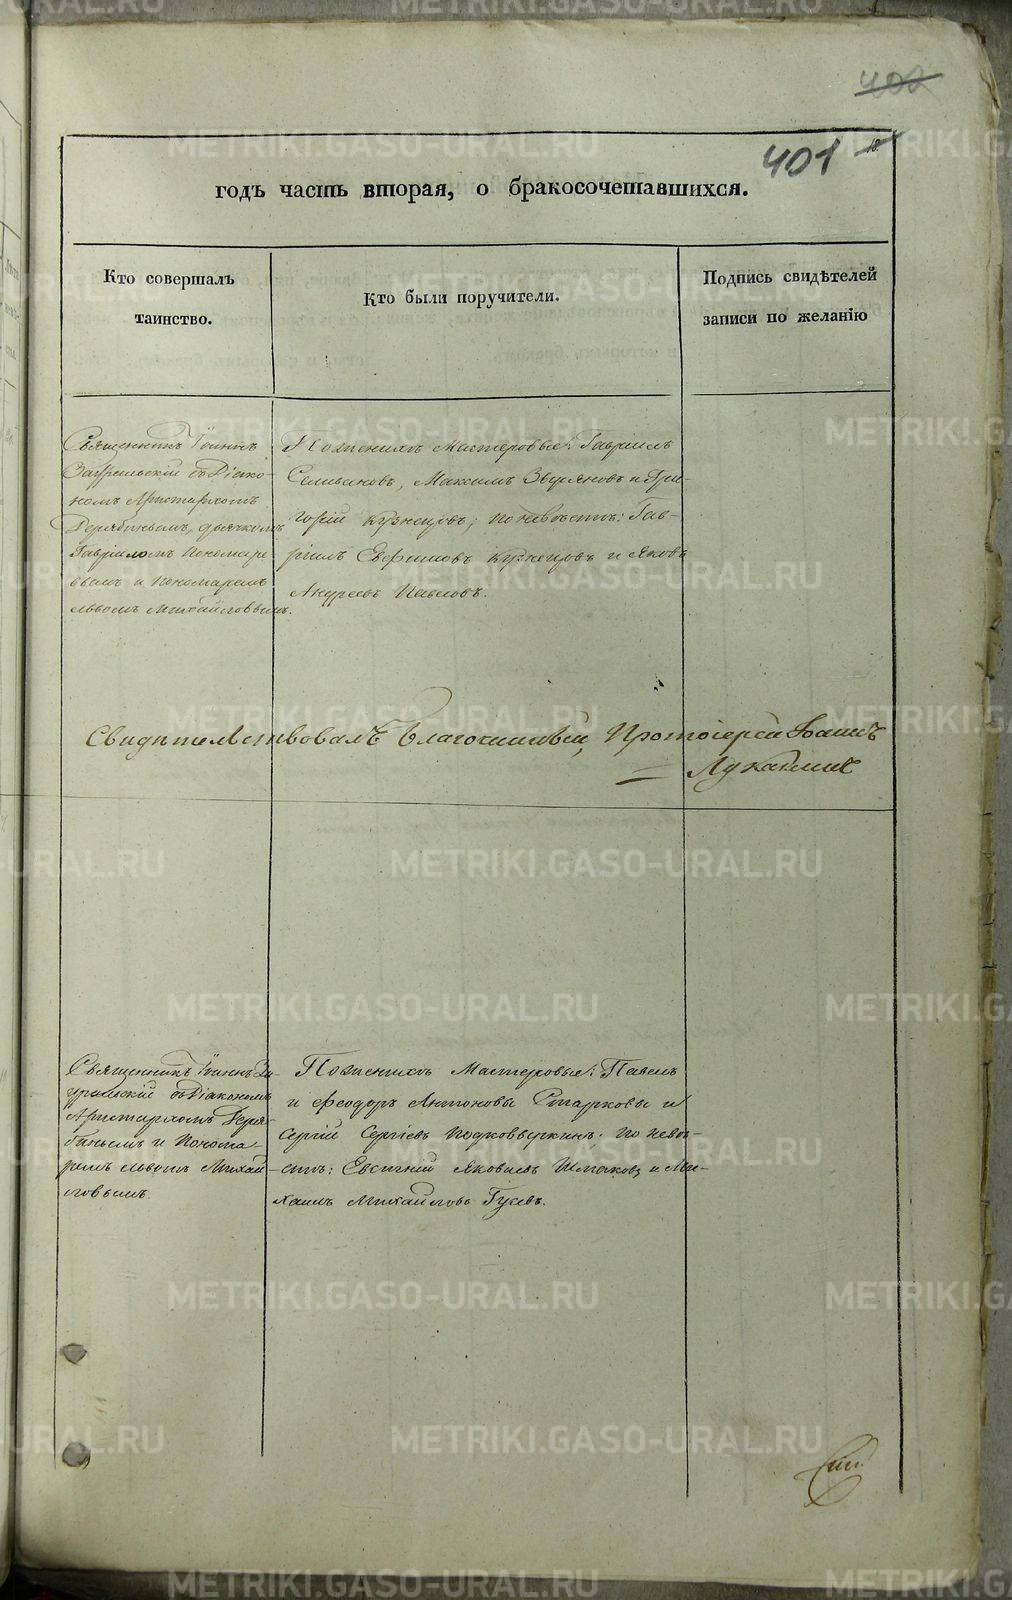 402
401
18
годъ часть вторая, о бракосочетавшихся.
Кто совершалъ
таинство.
Кто были поручители.
Подпись свидѣтелей
записи по желанію
Священникъ Іоаннъ
Зауральскій съ Діако-
номъ Аристархомъ
Дерябинымъ, дьячкомъ
Гавріиломъ Пономаре
вымъ и Пономаремъ
Львомъ Михайловымъ.
По женихѣ Мастеровые: Гавріилъ
Селивановъ, Максимъ Звѣряновъ и Гри-
горій Кузнецовъ; по невѣстѣ: Гав-
ріилъ Евфимовъ Кузнецовъ и Яковъ
Андреевъ Павловъ.
Свидѣтельствовалъ Благочинный, Протоіерей Іоаннъ
Луканинъ
Священникъ Іоаннъ За-
уральскій съ Діакономъ
Аристархомъ Деря-
бинымъ и Понома-
ремъ Львомъ Михай-
ловымъ.
По женихѣ Мастеровые: Павелъ
и Феодоръ Антоновы Старковы и
Сергій Сергіевъ Подковыркинъ; по невѣ-
стѣ: Евгеній Яковлевъ Шмаковъ и Ми-
хаилъ Михайловъ Гусевъ.
METRIKI.GASO-URAL.RU